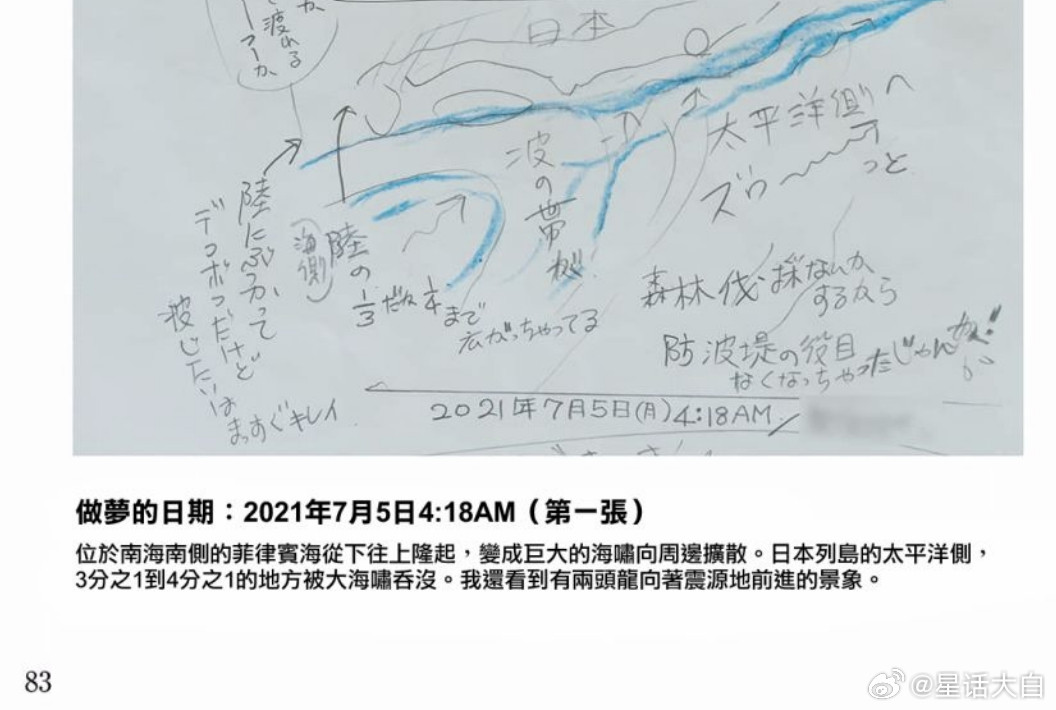 か、
渡れる
ーフーか
日本
太平洋側へ
ズゥ〜〜〜っと
波の帯が
陸にぶつかって
デコボコだけど
波じたいは
まっすぐキレイ
(海側)
陸の
1/3だね1/4まで
広がっちゃってる
森林伐採なんか
するから
防波堤の役目
なくなっちゃったじゃんか!
が
2021年7月5日(月)4:18AM
做夢的日期：2021年7月5日4:18AM（第一張）
位於南海南側的菲律賓海從下往上隆起，變成巨大的海嘯向周邊擴散。日本列島的太平洋側，
3分之1到4分之1的地方被大海嘯吞沒。我還看到有兩頭龍向著震源地前進的景象。
83
@星话大白